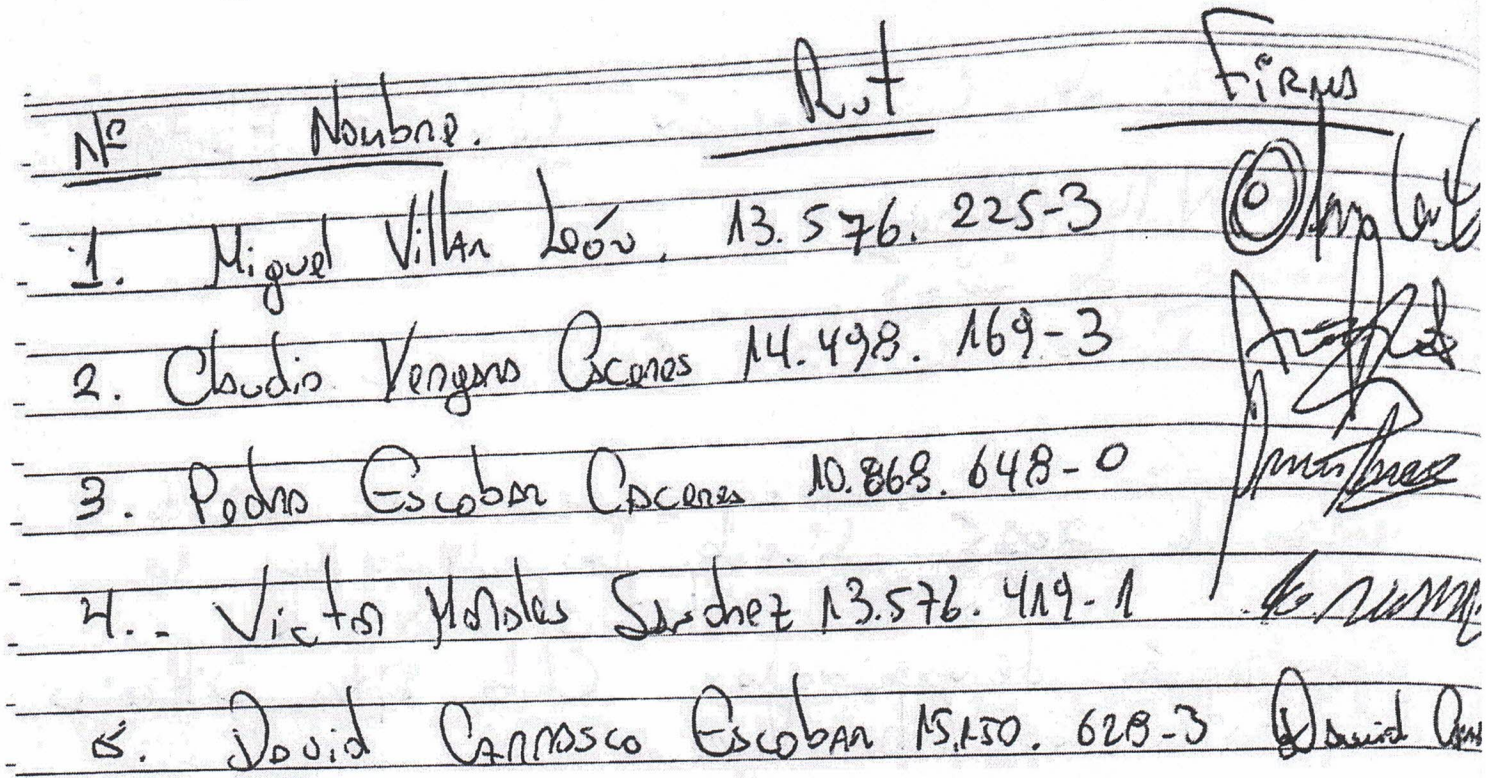 Nº Nombre. Rut Firma
1. Miguel Villar León. 13.576.225-3
2. Claudio Vergara Caceres 14.498.169-3
3. Pedro Escobar Caceres 10.868.648-0
4.. Victor Morales Sanchez 13.576.419-1
5. David Carrasco Escobar 15.150.628-3 David